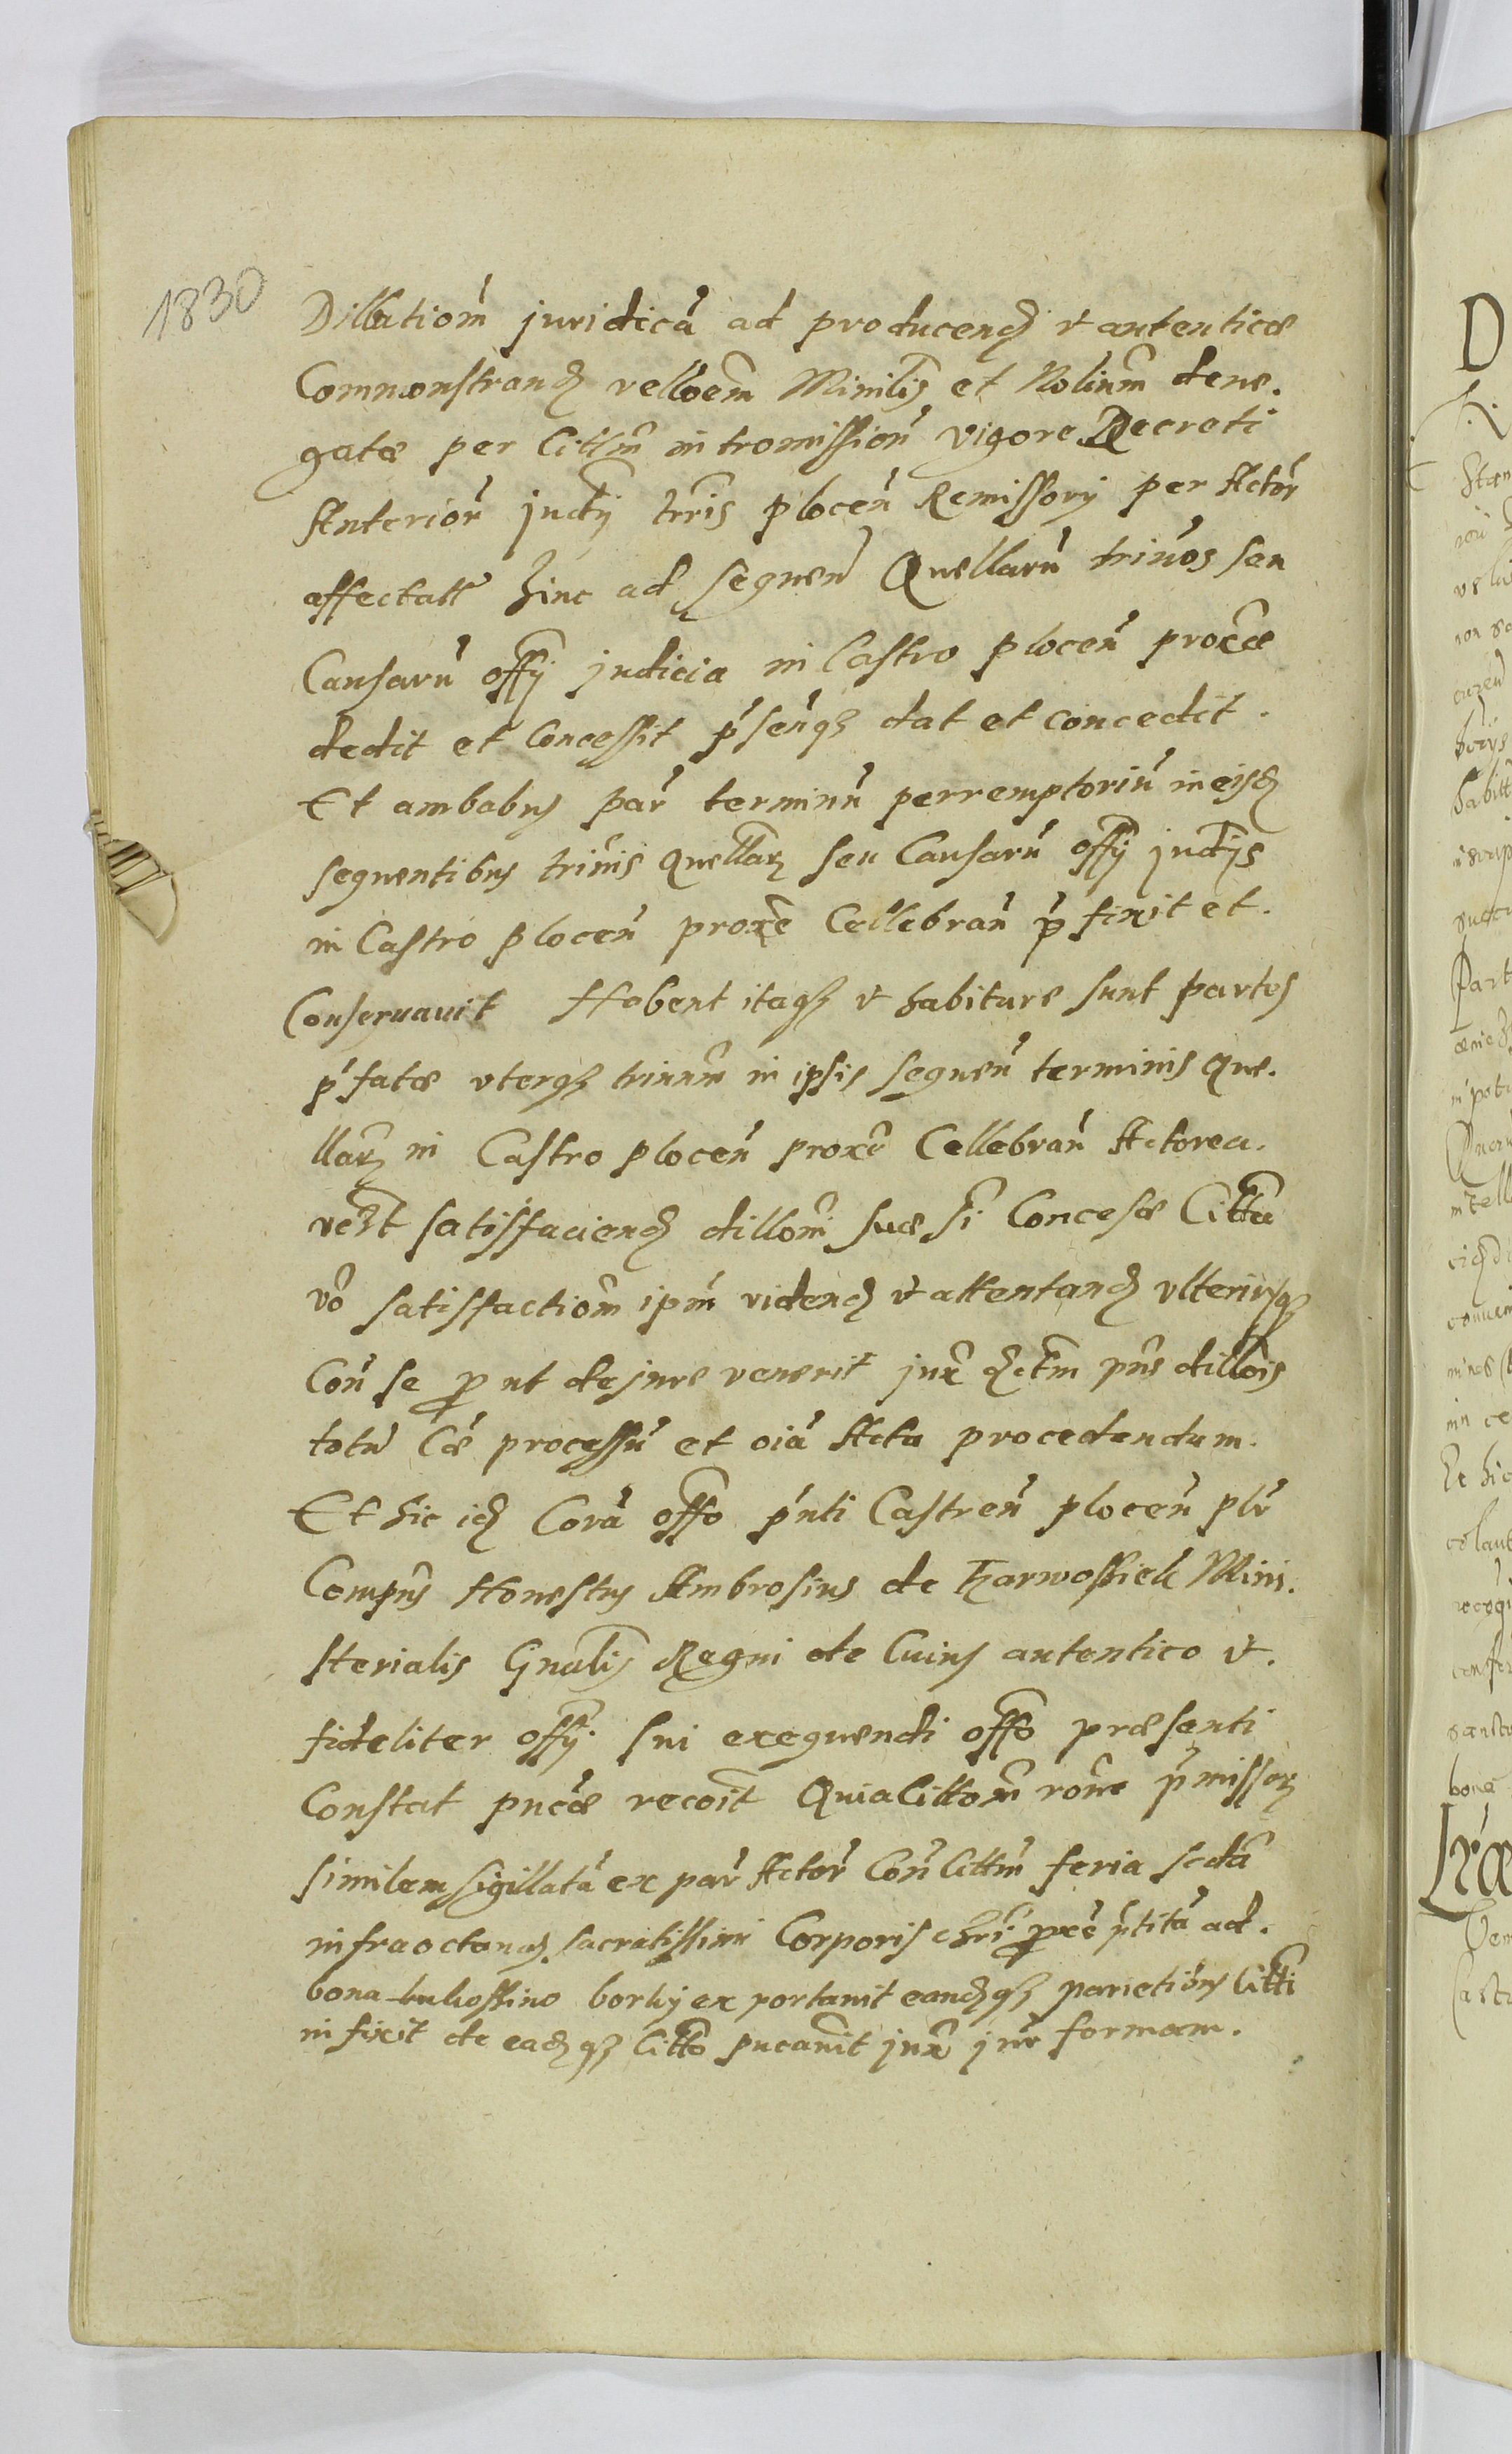 1830
Dillationem juridicã ad producenđ et autenticæ
Commonstranđ relloem Minilis et Nobiliũm dene.
gatæ per Cittm̃ intromission̉ vigore Decreti
Anterior̉ judy trris plocen̉ Remissorij per Actor̉
affectatt hinc ad sequen̉ Quellarũ trinos seu
Causarũ offij judicia in Castro plocen̉ proxæ
dedit et Concessit p̃senq₃ dat et concedit.
Et ambabus par̉ terminũ perremptoriũ in eisđ
sequentibus trinis quellaꝝ seu Causarũ offij judijs
in Castro plocen̉ proxe Cellebran̉ p̃fixit et.
Conservavit Habent itaq₃ et habituræ sunt partes
p̃fatæ uterq₃ trinũm in ipsis sequen̉ terminis que.
llaꝝ in Castro plocen̉ proxe Cellebran̉ Actorea.
vert̃ satisfacienđ dillom̃ suæ s̃i Concesæ Citta
v̉o satisfactiom̃ ipm̃ videnđ et attentanđ ulteriusq₃
Con̉ se ꝓut de jure venerit jux̃ đctm̃ pñs dillois
totũ Cæ processũ et oiã Acta procedendum.
Et hic iđ Corã offo p̃nti Castren̉ plocen̉ plr̉
Compñs Honestus Ambrosius de Tharwossiek Mini.
sterialis Gnalis Regni de Cuius autentico et.
fideliter offij sui exequendi offo præsenti
Constat pucæ recoit̃ Quia Cittom̃ rõne p̃missoꝝ
similem sigillatã ex par̉ Actor̉ Con̉ Cittm̃ feria sc̃đa
infra octavaꝝ sacratissimi Corporis Chrỉ ꝓxe p̃titã ad.
bona Lukossino borky ex portavit eanđq₃ parietibus Citti
in fixit de eađq₃ Citto pucavit jux̃ jur̉ formam.